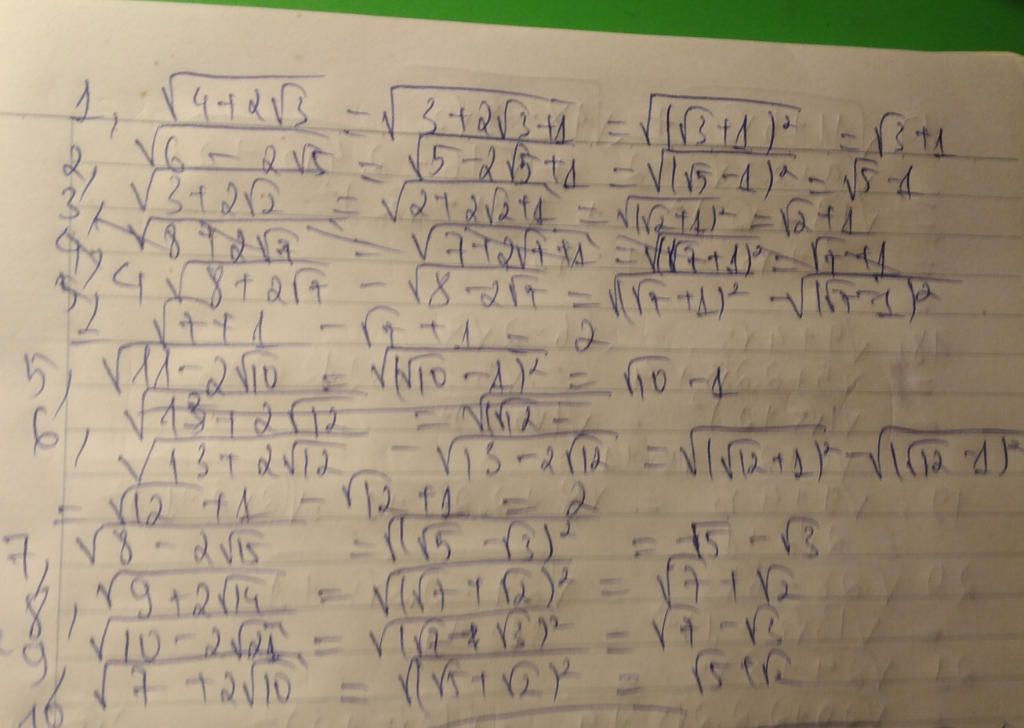 1, √(4+2√3) = √(3+2√3+1) = √((√3+1)²) = √3+1
2, √(6-2√5) = √(5-2√5+1) = √((√5-1)²) = √5-1
3, √(3+2√2) = √(2+2√2+1) = √((√2+1)²) = √2+1
4, √(8+2√7) = √(7+2√7+1) = √((√7+1)²) = √7+1
4 √(8+2√7) - √(8-2√7) = √((√7+1)²) - √((√7-1)²)
= √7+1 - √7+1 = 2
5, √(11-2√10) = √((√10-1)²) = √10-1
√(13+2√12) = √(√12 -
6, √(13+2√12) - √(13-2√12) = √((√12+1)²) - √((√12-1)²)
= √12+1 - √12+1 = 2
7, √(8-2√15) = √((√5-√3)²) = √5-√3
8, √(9+2√14) = √((√7+√2)²) = √7+√2
9, √(10-2√21) = √((√7-√3)²) = √7-√3
10 √(7+2√10) = √((√5+√2)²) = √5+√2